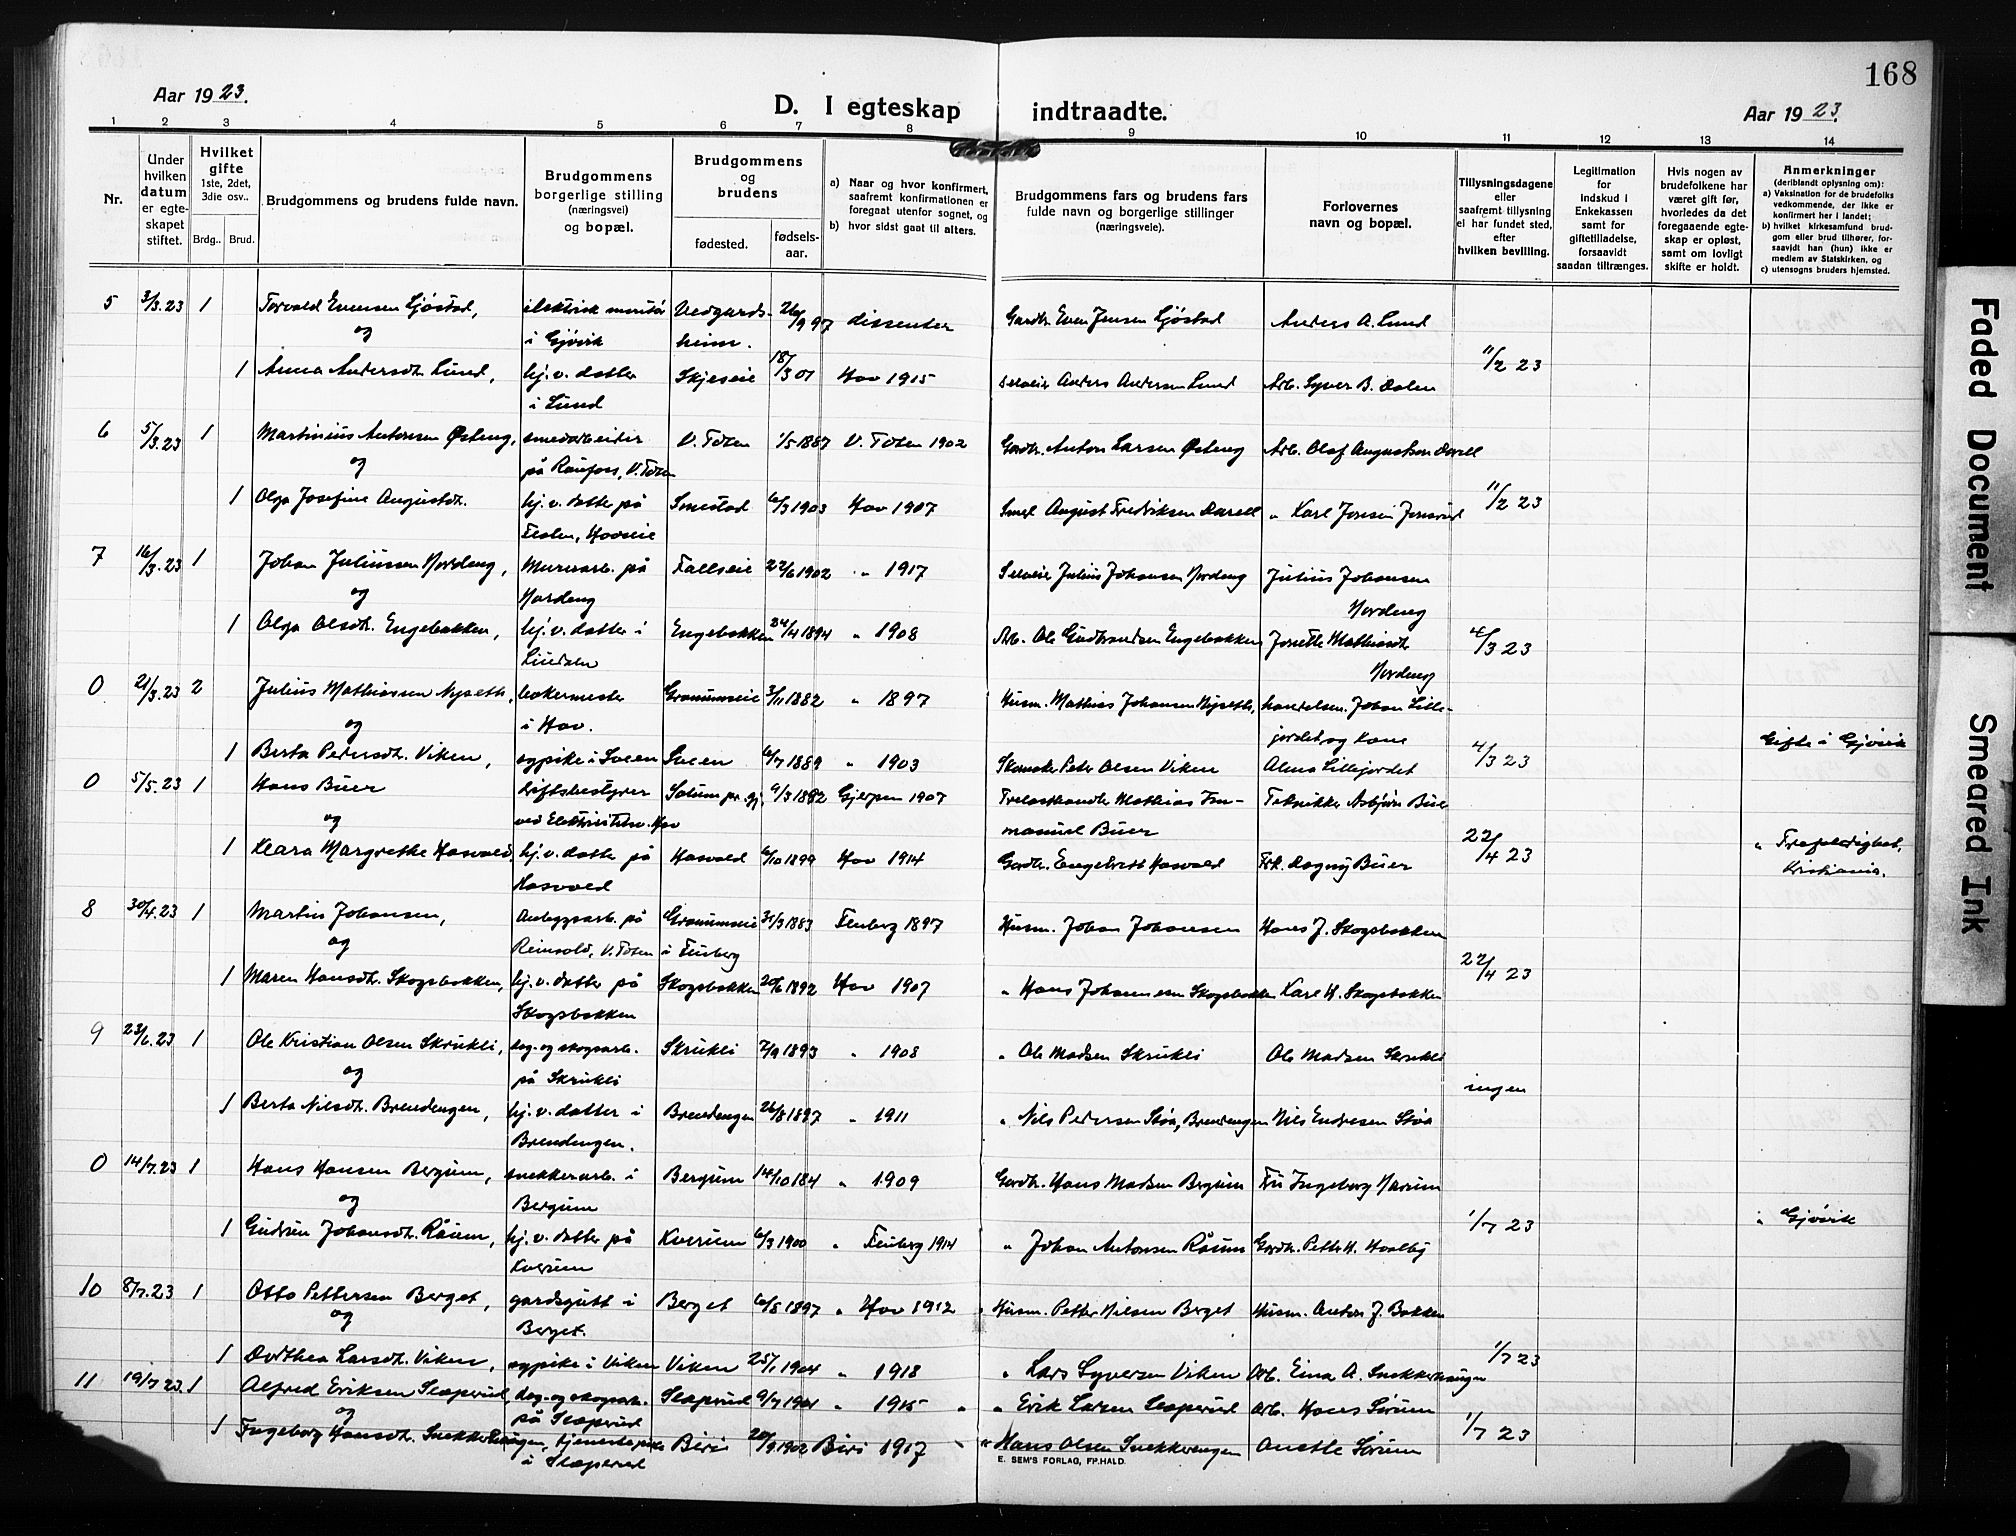 168
Aar 1923.
D. I egteskap indtraadte.
Aar 1923.
1 2 3 4 5 6 7 8 9 10 11 12 13 14
Nr.
Under hvilken datum er egteskapet stiftet.
Hvilket gifte 1ste, 2det, 3die osv..
Brdg.. Brud.
Brudgommens og brudens fulde navn.
Brudgommens borgerlige stilling (næringsvei) og bopæl.
Brudgommens og brudens
fødested.
fødsels-aar.
a) Naar og hvor konfirmert, saafremt konfirmationen er foregaat utenfor sognet, og
b) hvor sidst gaat til alters.
Brudgommens fars og brudens fars fulde navn og borgerlige stillinger (næringsveie).
Forlovernes navn og bopæl.
Tillysningsdagene eller saafremt tillysning ei har fundet sted, efter hvilken bevilling.
Legitimation for indskud i Enkekassen samt for giftetilladelse, forsaavidt saadan tiltrænges.
Hvis nogen av brudefolkene har været gift før, hvorledes da det foregaaende egteskap er opløst, samt om lovligt skifte er holdt.
Anmerkninger (deriblandt oplysning om):
a) Vaksination for de brudefolks vedkommende, der ikke er konfirmert her i landet;
b) hvilket kirkesamfund brudgom eller brud tilhører, forsaavidt han (hun) ikke er medlem av Statskirken, og
c) utensogns bruders hjemsted.
5 3/3.23 1 Torvald Evensen Sjøstad, elektrisk montør i Gjøvik 26/9 97 dissenter Gardbr. Even Jensen Sjøstad Anders A. Lund
og
1 Anna Andersdtr. Lund, hj.v. datter i Lund Skjeseie 18/3 01 Hov 1915 Selveier Anders Andersen Lund Arb. Syver B. Dalen 11/2 23
6 5/3.23 1 Martinius Antonsen Østeng, smedarbeider på Raufoss, V. Toten V. Toten 1/5 1887 V. Toten 1902 Gardbr. Anton Larsen Østeng Arb. Olaf Augustsen
og
1 Olga Josefine Augustdtr. hj.v. datter på Smestad 6/3 1903 Hov 1907 Smed August Fredriksen " Karl Jonsen 11/2 23
7 16/3.23 1 Johan Juliussen Nordeng, Murerarb. på Nordeng Fallseie 22/6 1902 " 1917 Selveier Julius Johansen Nordeng Julius Johansen Nordeng
og
1 Olga Olsdtr. Engebakken, hj.v. datter i Linddalen Engebakken 24/4 1894 " 1908 Arb. Ole Gudbrandsen Engebakken Jonette Mathisdtr. Nordeng 4/3 23
0 21/3.23 2 Julius Mathiassen Nyseth, bakermester i Hov. Granumseie 3/11 1882 " 1897 Husm. Mathias Johansen Nyseth, handelsm. Johan Lillejordet og Kone
og
1 Berta Pedersdtr. Viken, sypike i Sveen Sveen 6/7 1889 " 1903 Skomaker Peter Olsen Viken Alma Lillejordet 4/3 23 Gifte i Gjøvik
0 5/5.23 1 Hans Buer driftsbestyrer ved Elektricitetsv. Hov 9/3 1892 Gjerpen 1907 Trelasthandler Mathias Immanuel Buer Tekniker Asbjørn Buer
og
1 Klara Margrethe Hasvold, hj.v. datter på Hasvold Hasvold 6/10 1899 Hov 1914 Gardbr. Engebrett Hasvold Frk. Dagny Buer 22/4 23 " Trefoldighet, Kristiania.
8 30/4.23 1 Martin Johansen, Anlegsarb. på Reinsvold, V. Toten Granumseie i Fluberg 31/3 1883 Fluberg 1897 Husm. Johan Johansen Hans J. Skogsbakken
og
1 Maren Hansdtr. Skogsbakken, hj.v. datter på Skogsbakken Skogsbakken 20/6 1892 Hov 1907 " Hans Johannesen Skogsbakken Karl H. Skogsbakken 22/4 23
9 23/6.23 1 Ole Kristian Olsen Skrukli, dag- og skogsarb. på Skrukli Skrukli 7/9 1893 " 1908 " Ole Madsen Skrukli Ole Madsen Skrukli
og
1 Berta Nilsdtr. Brendengen, hj.v. datter i Brendengen. Brendengen 26/8 1897 " 1911 " Nils Pedersen Støa, Brendengen Nils Endresen Støa ingen
0 14/7.23 1 Hans Hansen Bergum, snekkerarb. i Bergum Bergum 14/10 " 1909 Gardbr. Hans Madsen Bergum Fru Ingeborg
og
1 Gudrun Johansdtr. Råum, hj.v. datter på Kverum Kverum 6/3 1900 " Fluberg 1914 " Johan Antonsen Råum Gardbr. Petter H. Haalby 1/7 23 " Gjøvik
10 8/7.23 1 Otto Pettersen Berget, gardsgutt i Berget. Berget 6/8 1897 " Hov 1912 Husm. Petter Nilsen Berget Husm. Anton J. Bakken
og
1 Dorthea Larsdtr. Viken, sypike i Viken Viken 25/1 1904 " 1918 " Lars Syversen Viken Arb. Einar A. Snekkerhaugen 1/7 23
11 19/7 23. 1 Alfred Eriksen Sløperud, dag- og skogsarb. på Sløperud Sløperud 9/7 " " Erik Larsen Sløperud Arb. Hans Sørum
og
1 Ingeborg Hansdtr. tjenestepike i Sløperud Biri 20/9 1902 Biri 1917 " Hans Olsen Snekkerengen Anette Sørum 1/7 23
E. SEM'S FORLAG, FR.HALD.
Faded Document
Smeared Ink